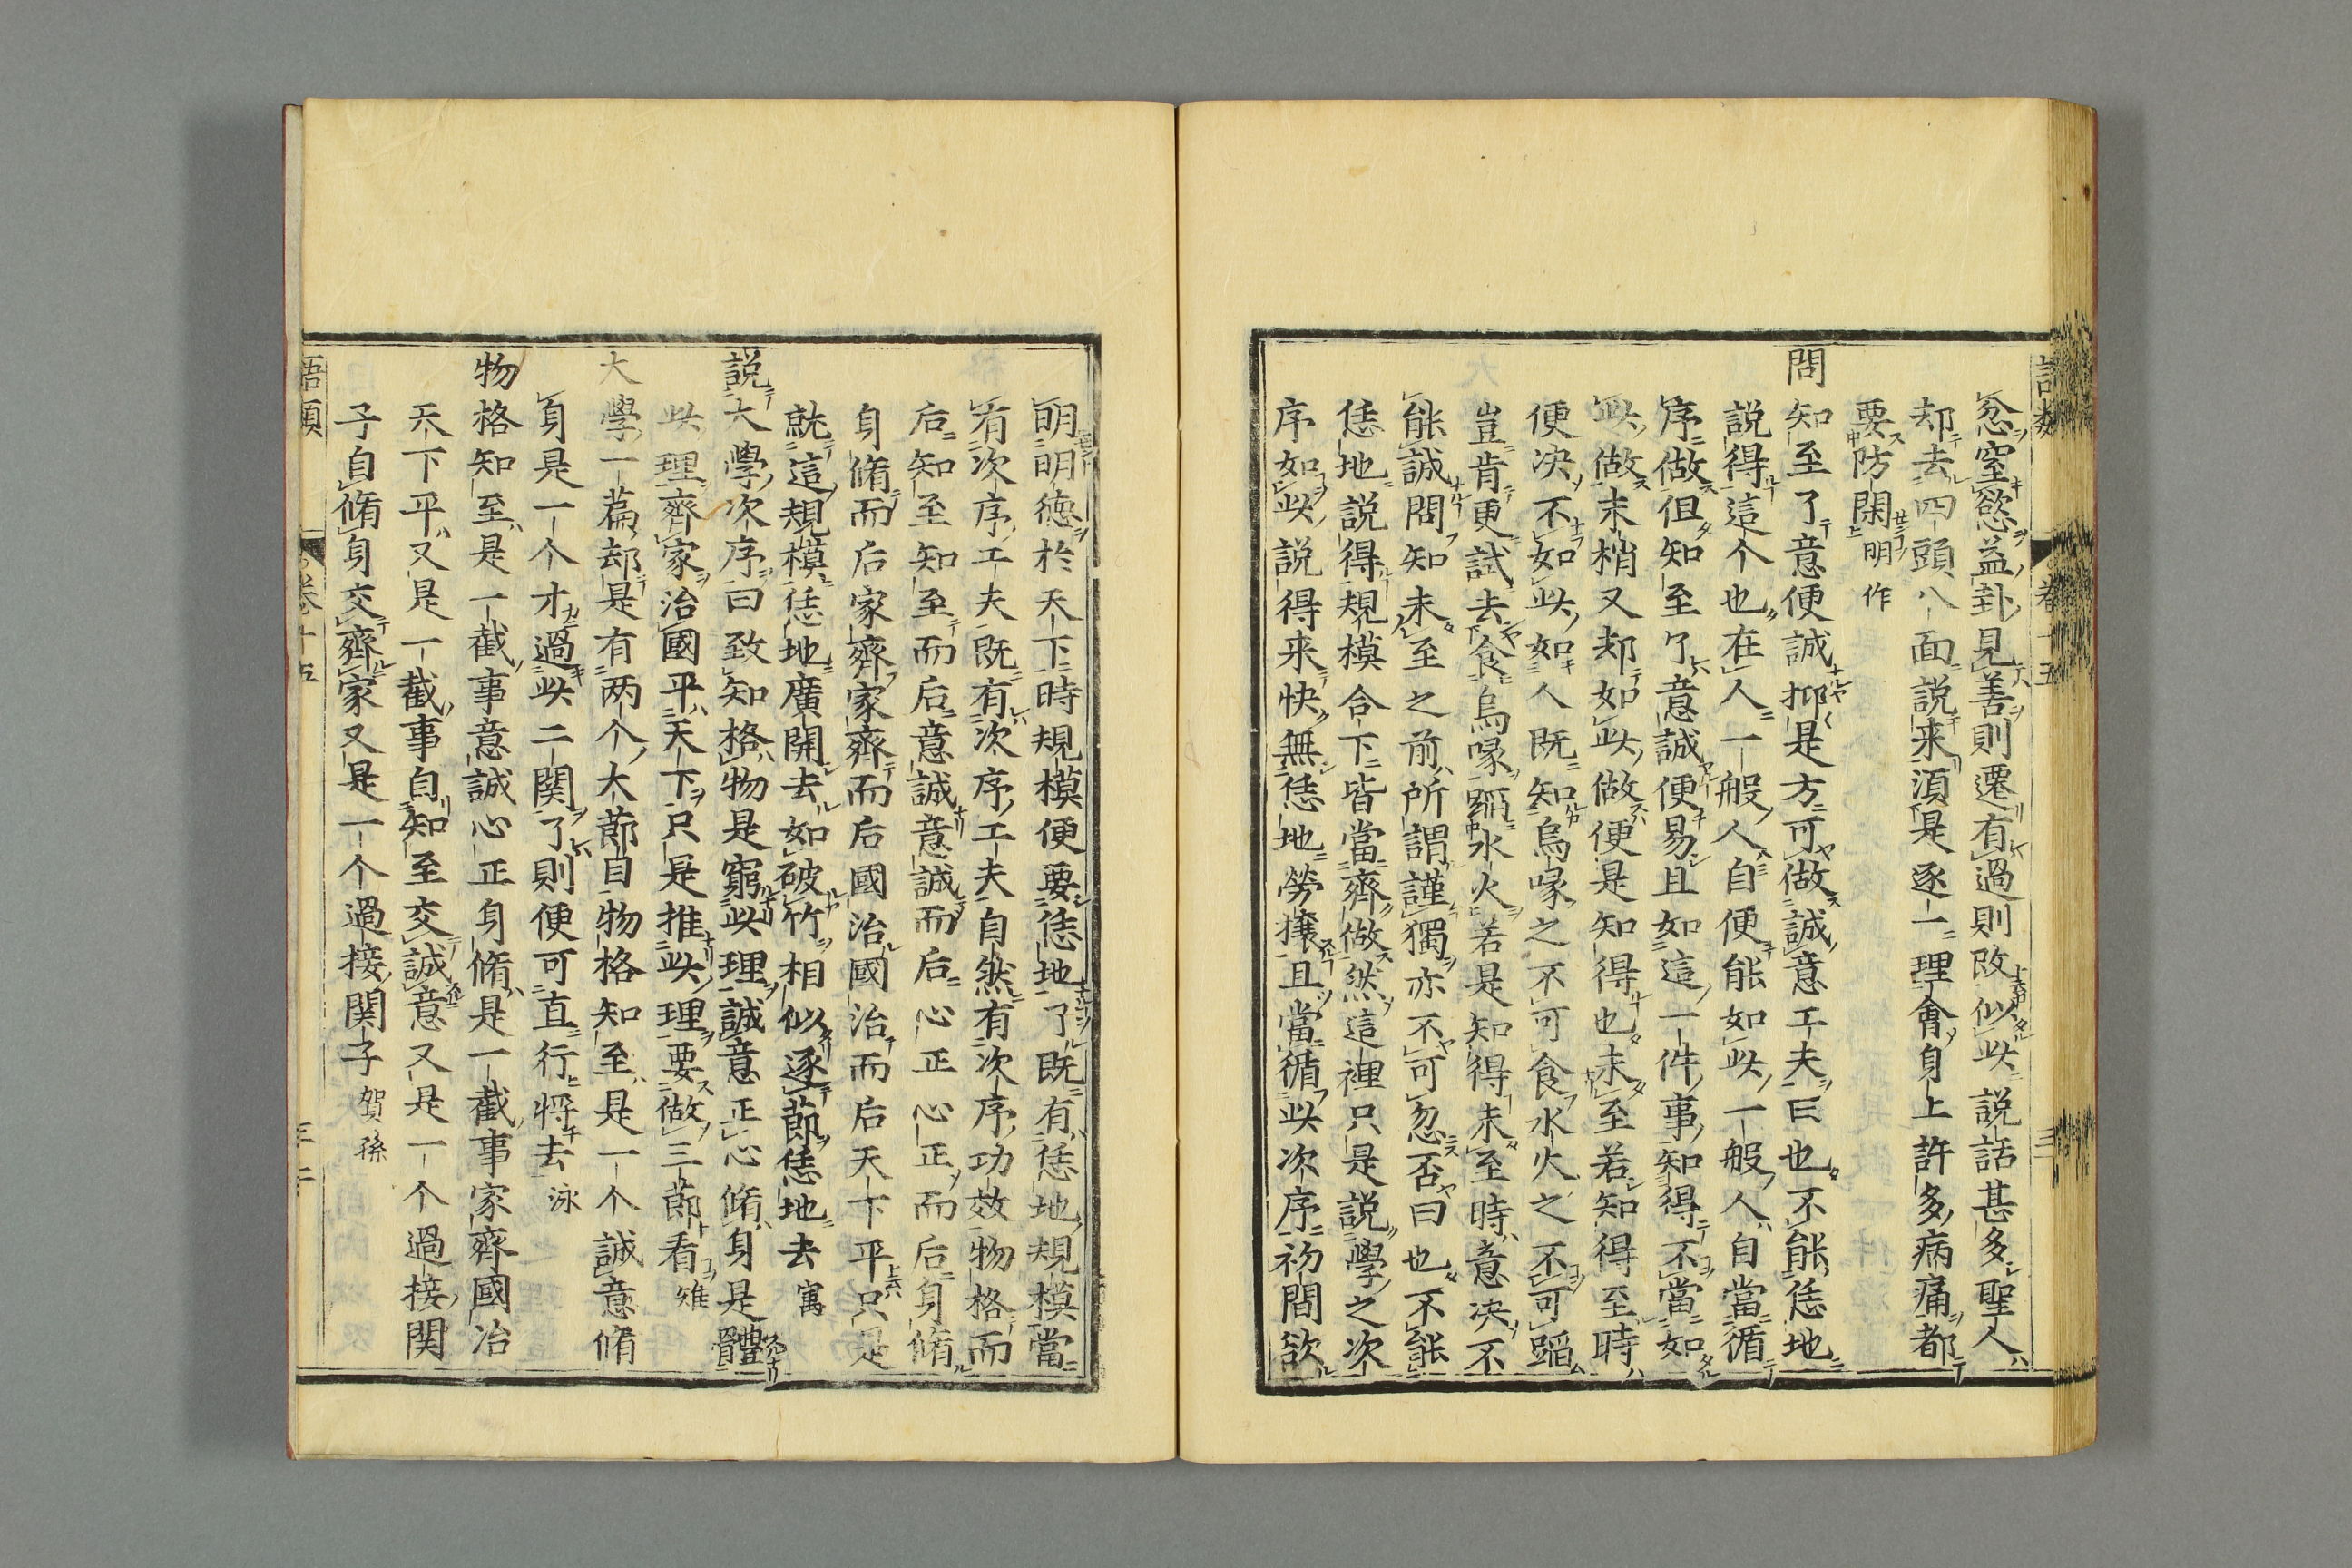 忿窒慾益卦見善則遷有過則改似此說話甚多聖人
却去四頭八面說来湏是逐一理會身上許多病痛都
要防閑明作
問知至了意便誠抑是方可做誠意工夫曰也不能恁地
說得這个也在人一般人自便能如此一般人自當循
序做但知至了意誠便易且如這一件事知得不當如
此做末梢又却如此做便是知得也未至若知得至時
便决不如此如人既知烏喙之不可食水火之不可蹈
豈肯更試去食烏喙蹈水火若是知得未至時意决不
能誠問知未至之前所謂謹獨亦不可忽否曰也不能
恁地說得規模合下皆當齊做然這裡只是說學之次
序如此說得来快無恁地勞攘且當循此次序初間欲
明明德於天下時規模便要恁地了既有恁地規模當
有次序工夫既有次序工夫自然有次序功效物格而
后知至知至而后意誠意誠而后心正心正而后身脩
身脩而后家齊家齊而后國治國治而后天下平只是
就這規模恁地廣開去如破竹相似逐節恁地去 㝢
說大學次序曰致知格物是窮此理誠意正心脩身是體
此理齊家治國平天下只是推此理要做三節看 雉
大學一篇却是有两个大節自物格知至是一个誠意脩
身是一个才過此二関了則便可直行將去 泳
物格知至是一截事意誠心正身脩是一截事家齊國治
天下平又是一截事自知至交誠意又是一个過接関
子自脩身交齊家又是一个過接関子 賀孫
語類 卷十五 三十二